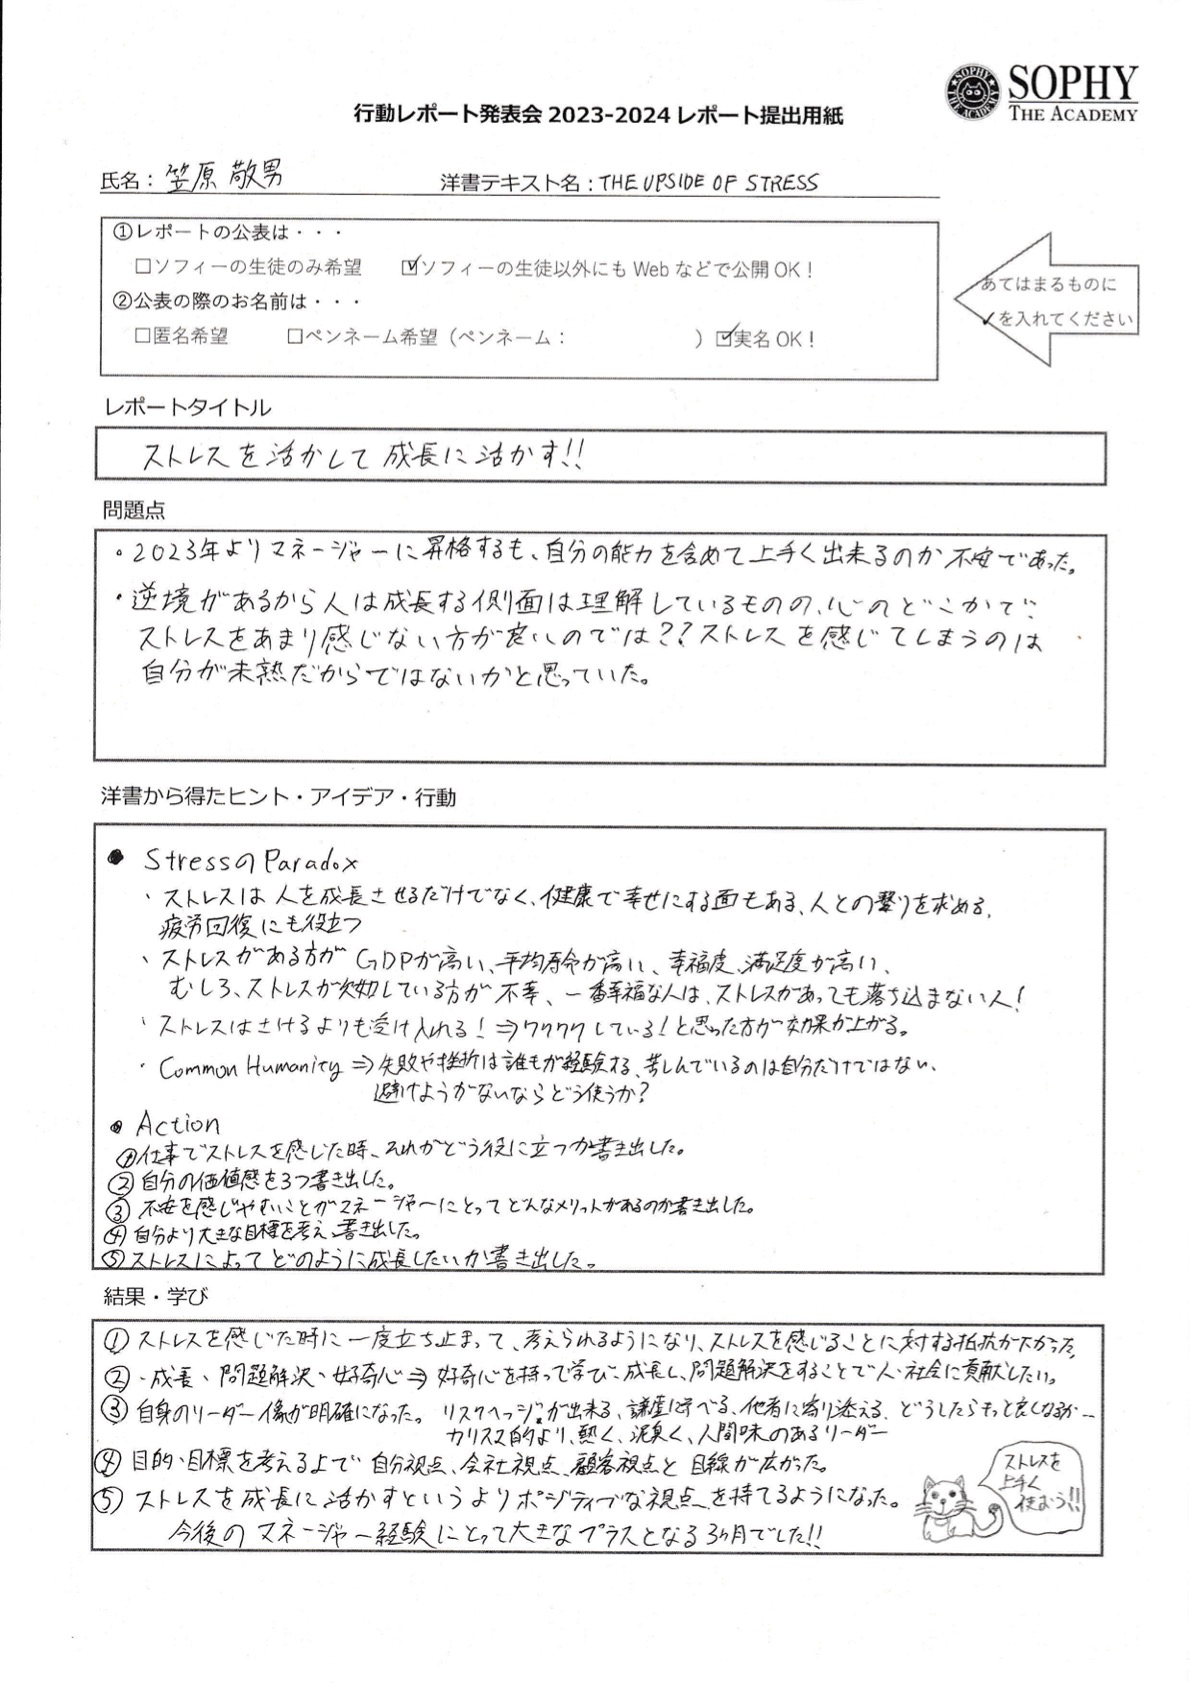 SOPHY
THE ACADEMY
行動レポート発表会 2023-2024 レポート提出用紙
氏名：笠原 敬男　洋書テキスト名：THE UPSIDE OF STRESS
①レポートの公表は・・・
□ソフィーの生徒のみ希望　☑ソフィーの生徒以外にも Web などで公開 OK！
②公表の際のお名前は・・・
□匿名希望　□ペンネーム希望（ペンネーム：　）☑実名 OK！
あてはまるものに
✓を入れてください
レポートタイトル
ストレスを活かして成長に活かす!!
問題点
・2023年よりマネージャーに昇格するも、自分の能力を含めて上手く出来るのか不安であった。
・逆境があるから人は成長する側面は理解しているものの、心のどこかで
ストレスをあまり感じない方が良いのでは??ストレスを感じてしまうのは
自分が未熟だからではないかと思っていた。
洋書から得たヒント・アイデア・行動
● StressのParadox
・ストレスは人を成長させるだけでなく、健康で幸せにする面もある、人との繋りを求める、
疲労回復にも役立つ
・ストレスがある方がGDPが高い、平均寿命が高い、幸福度、満足度が高い、
むしろ、ストレスが欠如している方が不幸、一番幸福な人は、ストレスがあっても落ち込まない人!
・ストレスはさけるよりも受け入れる!⇒ワクワクしている!と思った方が効果が上がる。
・Common Humanity ⇒失敗や挫折は誰もが経験する、苦しんでいるのは自分だけではない、
避けようがないならどう使うか?
● Action
①仕事でストレスを感じた時、それがどう役に立つか書き出した。
②自分の価値感を3つ書き出した。
③不安を感じやすいことがマネージャーにとってどんなメリットがあるのか書き出した。
④自分より大きな目標を考え、書き出した。
⑤ストレスによってどのように成長したいか書き出した。
結果・学び
①ストレスを感じた時に一度立ち止まって、考えられるようになり、ストレスを感じることに対する抵抗が下がった。
②・成長、問題解決、好奇心⇒好奇心を持って学び、成長し、問題解決をすることで人・社会に貢献したい。
③自身のリーダー像が明確になった。リスクヘッジが出来る、謙虚に学べる、他者に寄り添える、どうしたらもっと良くなるか…
カリスマ的より、熱く、泥臭く、人間味のあるリーダー
④目的・目標を考える上で自分視点、会社視点、顧客視点と目線が広がった。
⑤ストレスを成長に活かすというよりポジティブな視点を持てるようになった。
今後のマネージャー経験にとって大きなプラスとなる3ヶ月でした!!
ストレスを
上手く
使おう!!